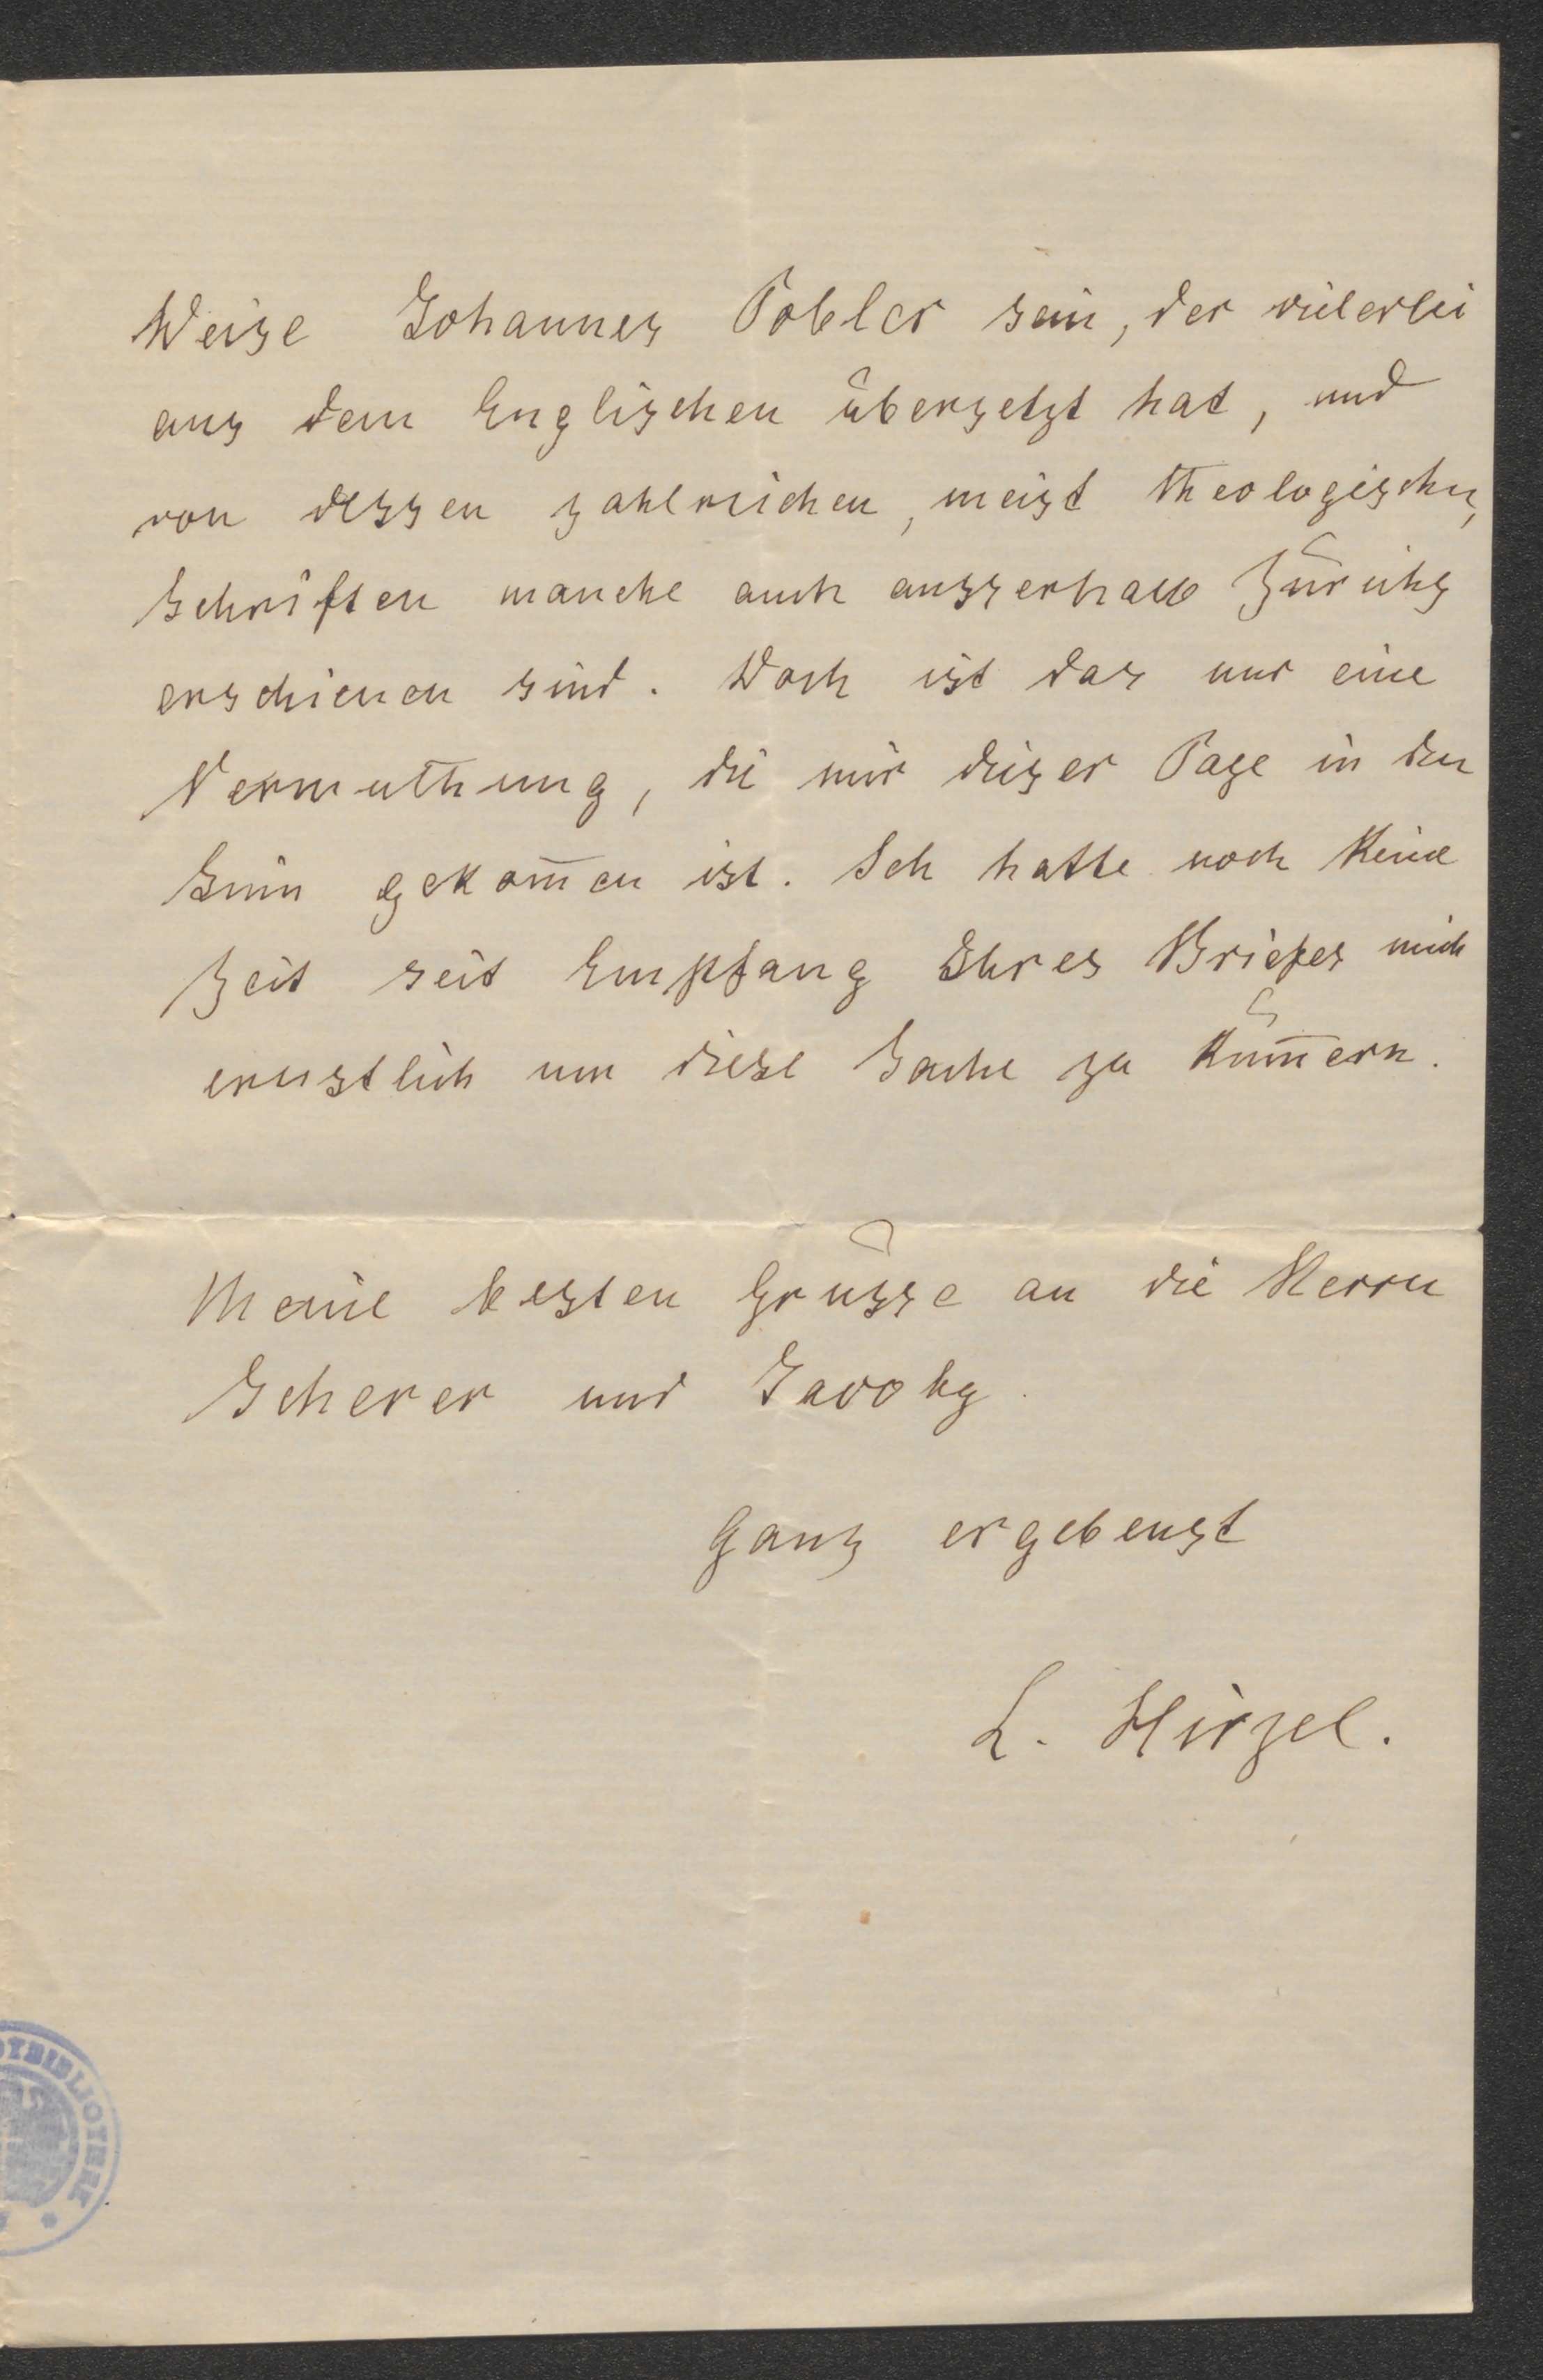 Weise Johannes Tobler sein, der vielerlei
aus dem Englischen übersetzt hat, und
von dessen zahlreichen, meist theologischen,
Schriften manche auch ausserhalb Zürichs
erschienen sind. Doch ist das nur eine
Vermuthung, die mir dieser Tage in den
Sinn gekom̄en ist. Ich hatte noch keine
Zeit seit Empfang Ihres Briefes mich
ernstlich um diese Sache zu küm̄ern.
Meine besten Grüsse an die Herrn
Scherer und Jacoby.
Ganz ergebenst
L. Hirzel.
OTBIBLIOTHEK